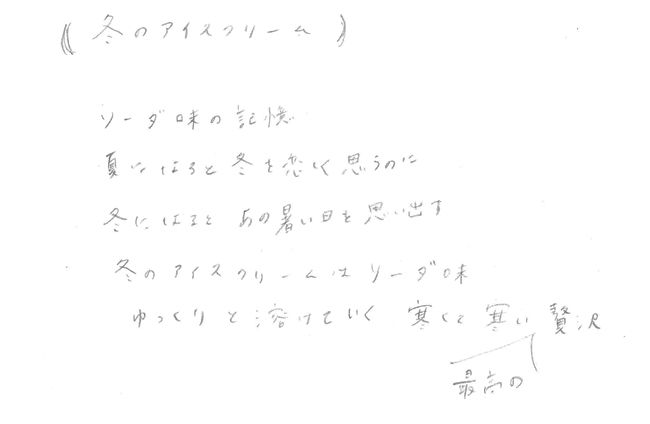 《 冬のアイスクリーム 》
ソーダ味の記憶
夏になると冬を恋しく思うのに
冬になると あの暑い日を思い出す
冬のアイスクリームはソーダ味
ゆっくりと溶けていく 寒くて寒い 贅沢
最高の